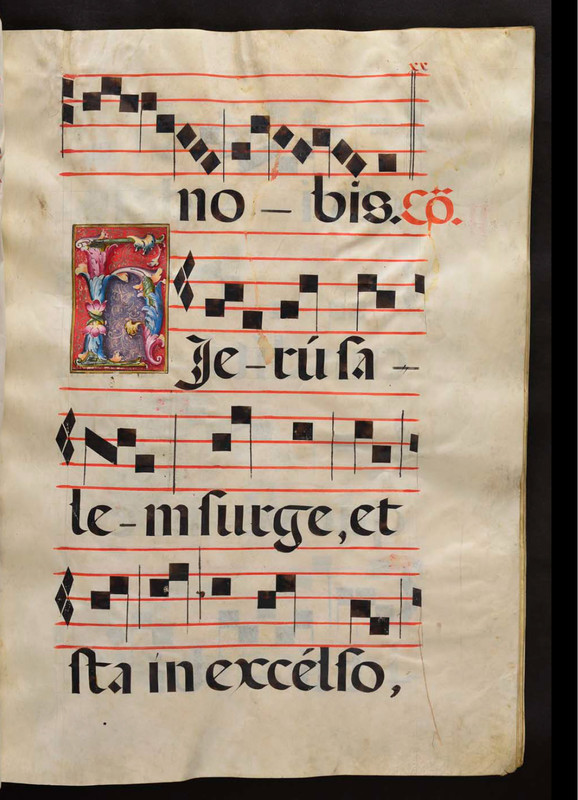 xx
no - bis. Cō.
HJe-rúſa-
le-m ſurge, et
ſta in excélſo,